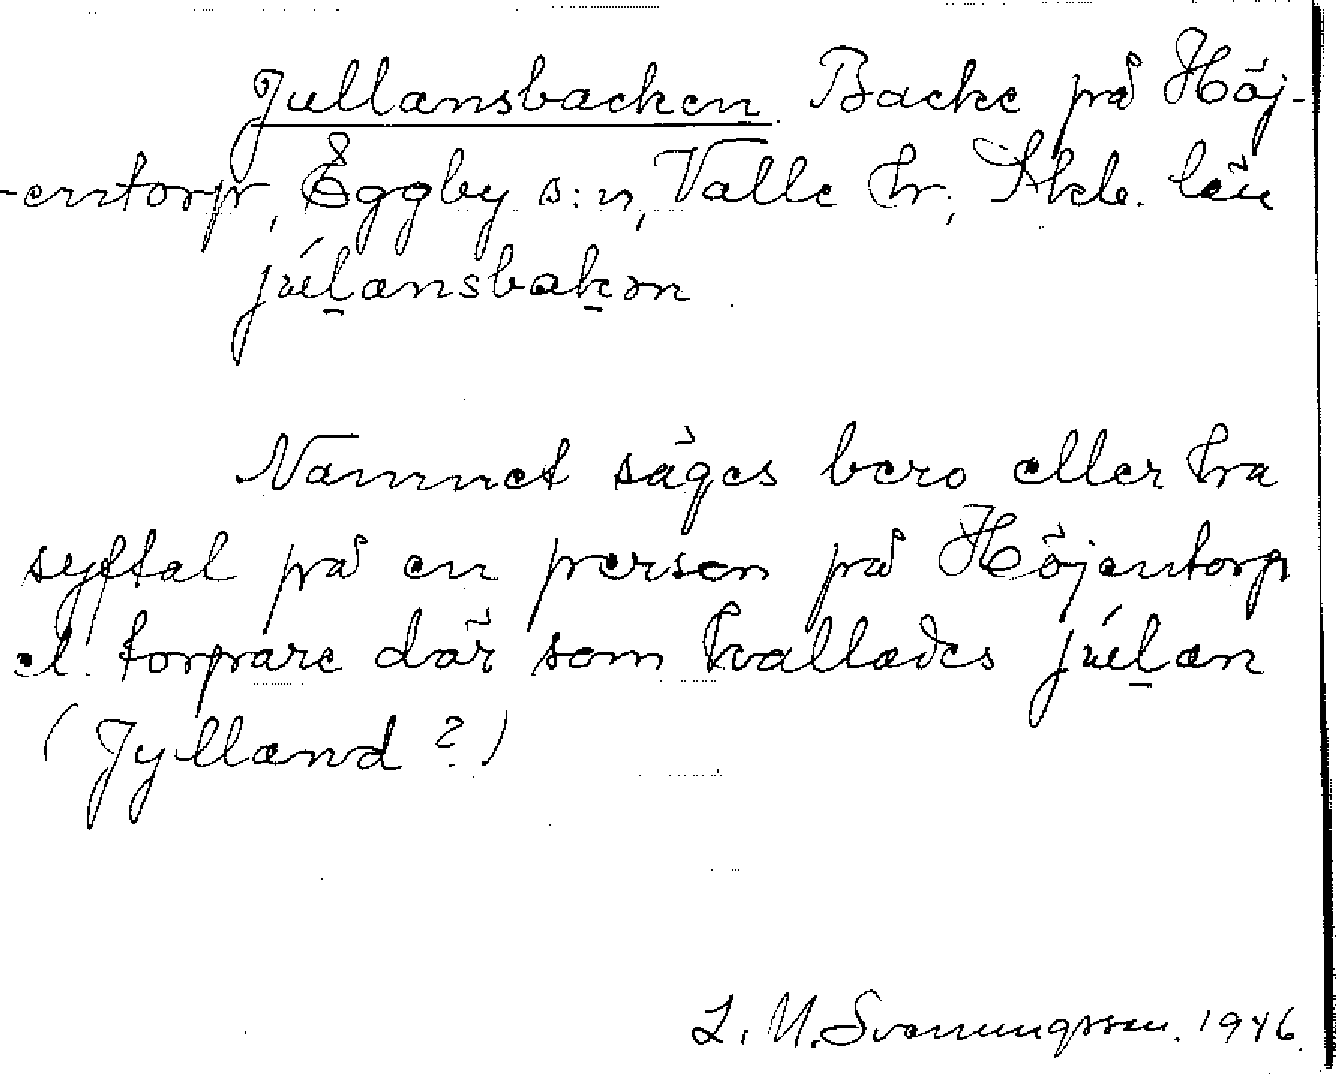 Jullansbacken. Backe på Höj-
-entorp, Eggby s:n, Valle hr, Skb. län
júl̠ansbak̠ən.
Namnet säges bero eller ha
syftat på en person på Höjentorp
el. torpare där som kallades júl̠an
(Jylland?)
L. M. Svenungsson. 1946.